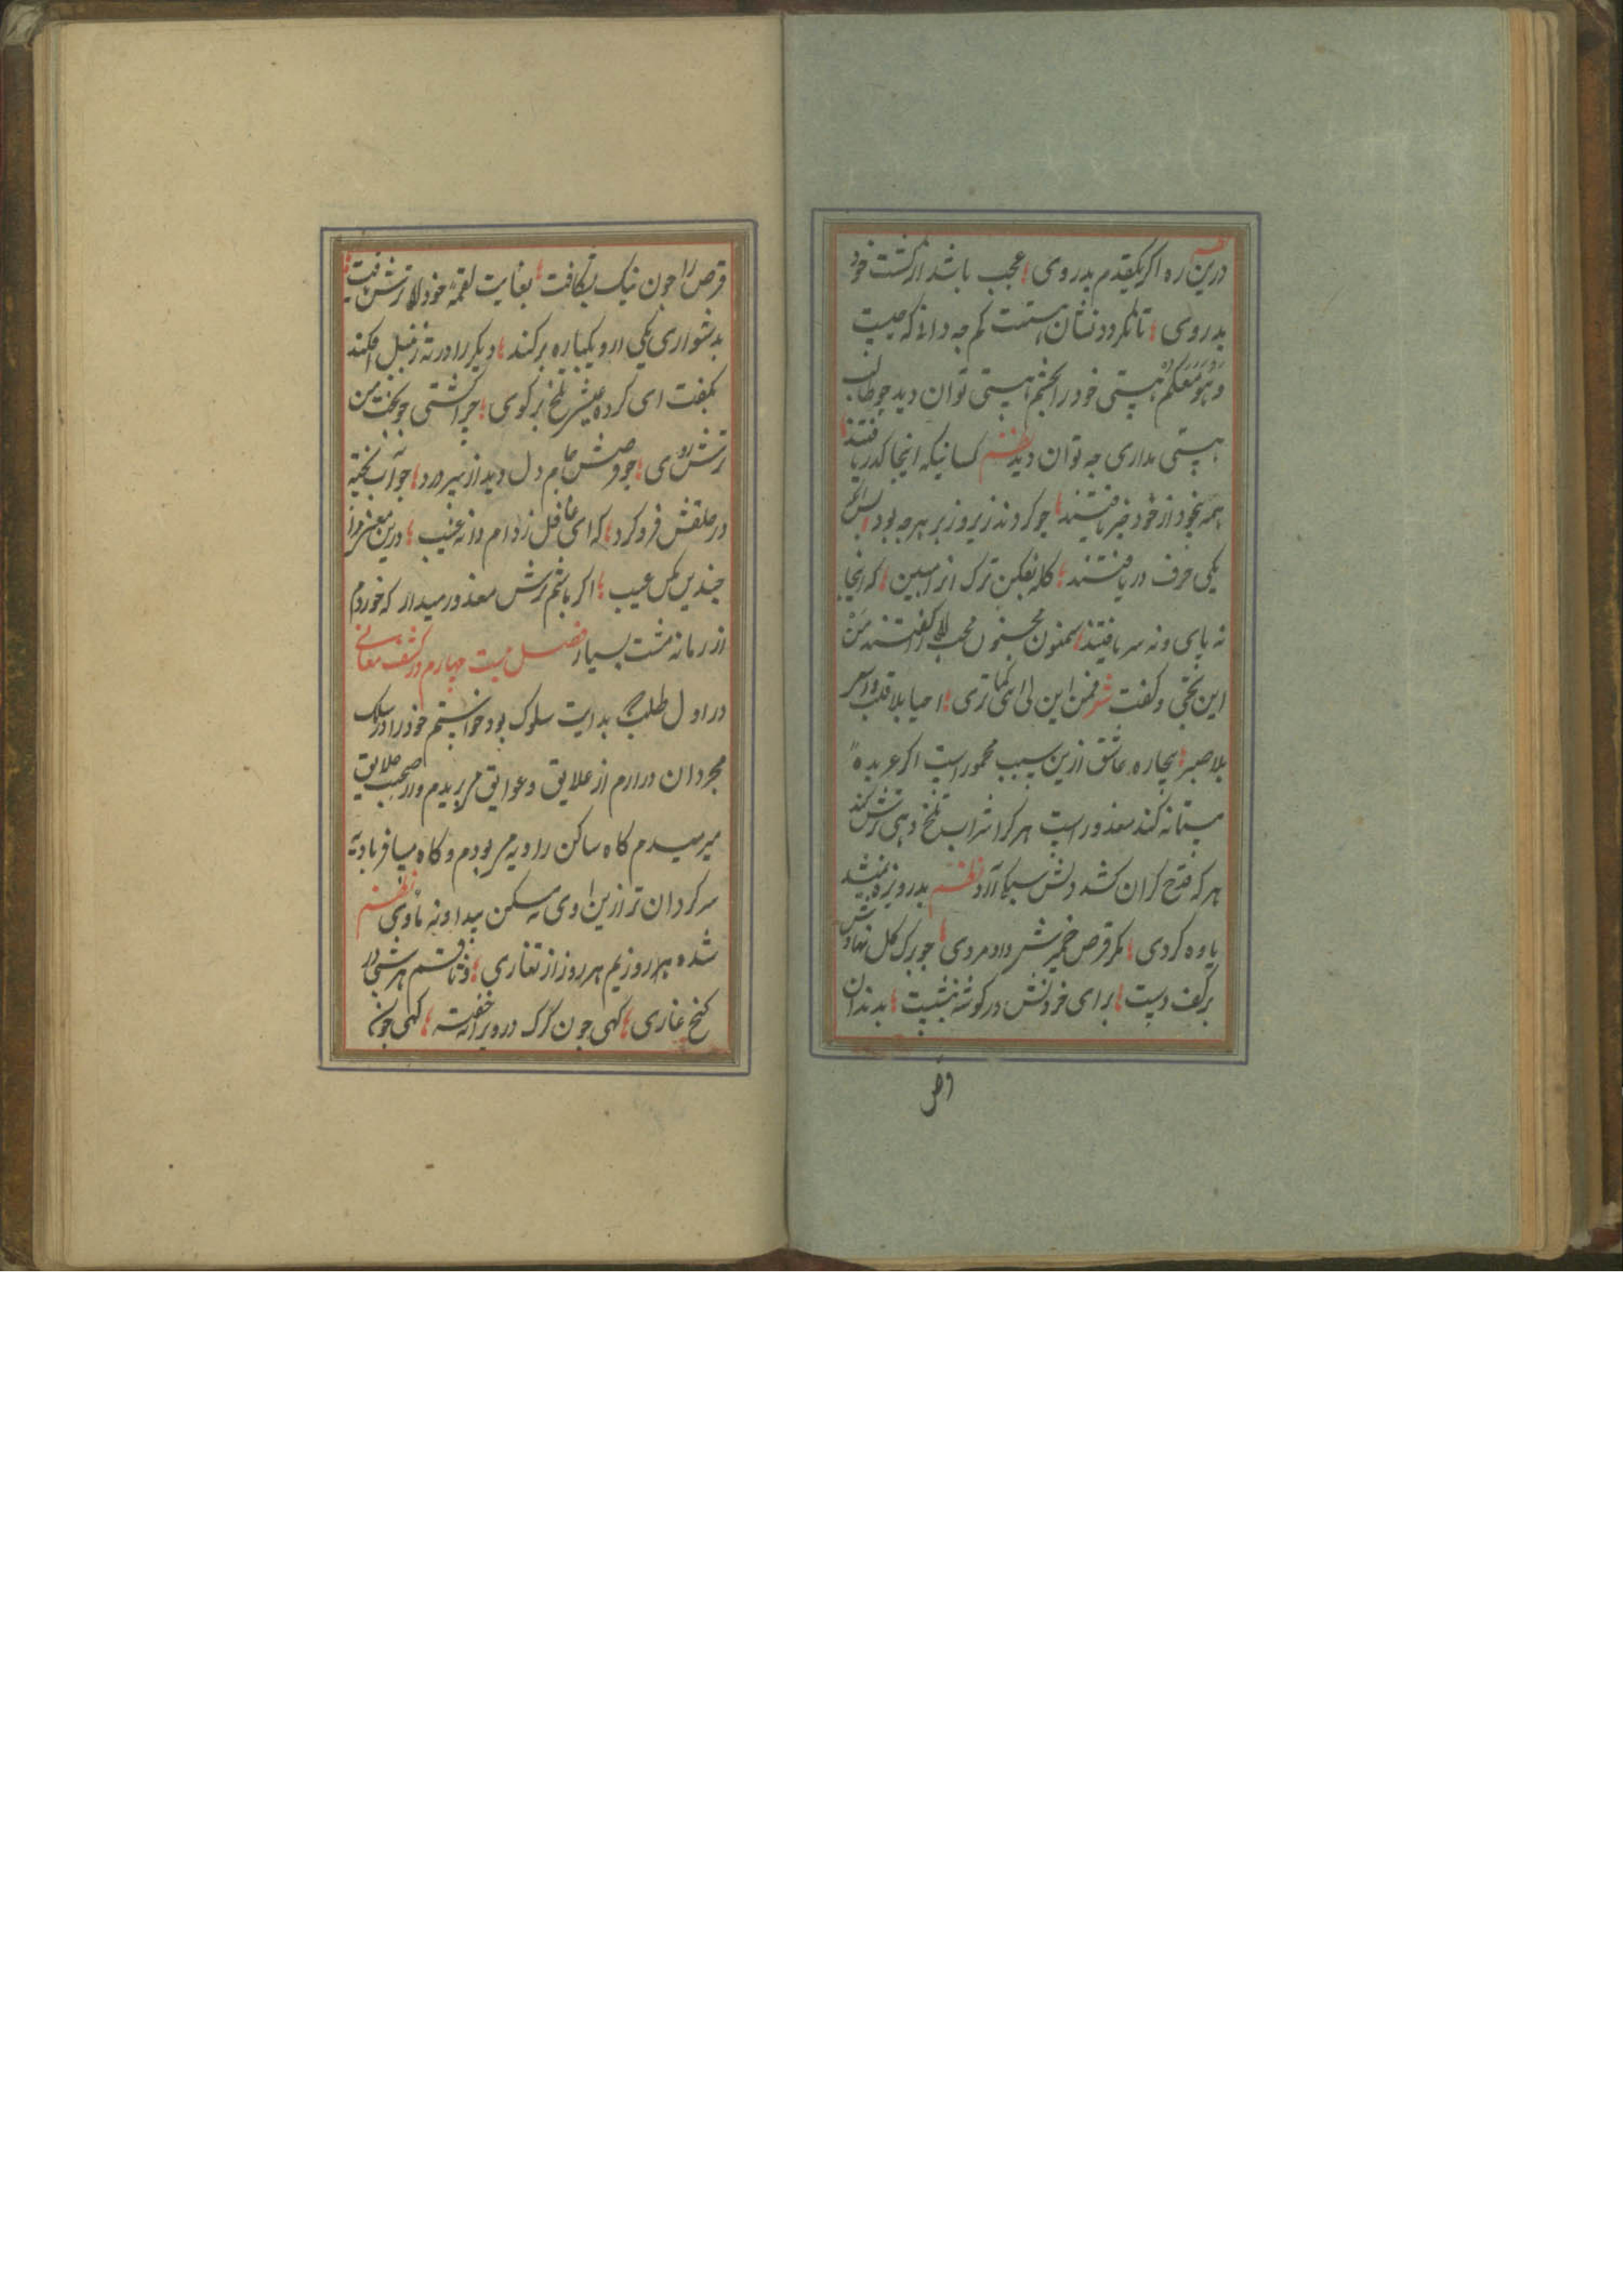 نظم
درین ره اکر یکقدم بدروی عجب باشد ار کشت خود
بدروی تا نکردد نشان هستیت کم چه دانی که چیست
وَهُوَ مَعَکُم هستی خود را بچشم هستی توان دید چو طالب
هستی نداری چه توان دید نظم کسانیکه اینجا کذر یافتند
همه بیخود از خود خبر یافتند چو کردند زیر و زبر هرچه بود
یکی حرف در یافتند کله بفکن ترک این که اینجا
نه پای و نه سر یافتند سمنون مجنون محب را کفتند مَن
این تجی و کفت شعر فمن این لی این کما تری احیا بلا قلب و
بلا صبر بیچاره عاشق ازین سبب مخمور است اکر عربده
مستانه کند معذور است هر کرا شراب تلخ دهی ترش کند
هر که قدح کران کشد دلش سبک آرد نظم بدریوزه
یاوه کردی مکر قرص خمیرش داد مردی چو برک کل نهادش
برکف دست برای خوردنش در کوشه بنشست بدندان
قرص
قرص را چون نیک بشکافت بغایت لقمه خود را ترش یافت
بدشواری یکی از و یکپاره برکند دیکر را در ته زنبیل افکند
بکفت ای کرده عیشم تلخ برکوی چرا کشتی چو بخت من
ترش روی چو قرصش خام دل دید از سر درد جواب پخته
در حلقش فرو کرد که ای غافل ز دام دانه غیب درین معنی مرا
چندین مکن عیب اکر باشم ترش معذور میدار که خوردم
از زمانه مشت بسیار فصل بیست چهارم در کشف معانی
در اول طلب که بدایت سلوک بود خواستم خود را در سلک
مجردان درارم از علایق و عوایق می بریدم و از صحبت خلایق
میرمیدم کاه ساکن زاویه می بودم و کاه مسافر بادیه
سرکردان تر ازین اوی نه مسکن پیدا و نه ماوی نظم
شده هر روزیم هر روز از تغاری وثاقم هر شبی در
کنج غاری کهی چون کرک در ویرانه خفته کهی چون